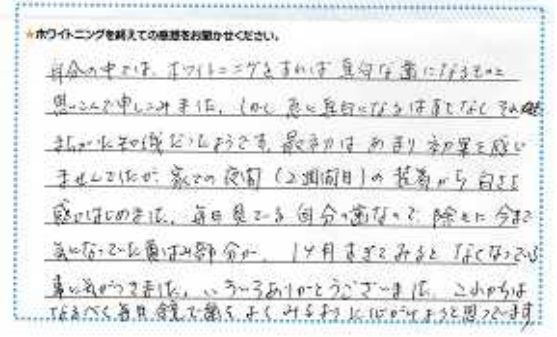 ★ホワイトニングを終えての感想をお聞かせください。
自分の中では、ホワイトニングをすれば真白な歯になるものと
思いこんで申しこみました。しかし急に真白になるはずもなく それは
まちがった知識だったようです。最初は あまり 効果を感じ
ませんでしたが、家での夜間（2週間目）の装着から 白さを
感じはじめました。毎日見ている自分の歯なので、除々に 今まで
気になっていた黄ばみ部分が、1ヶ月すぎてみると なくなっている
事に気がつきました。いろいろありがとうございました。これからは
なるべく毎日 鏡で歯を よく みるように心がけようと思っています